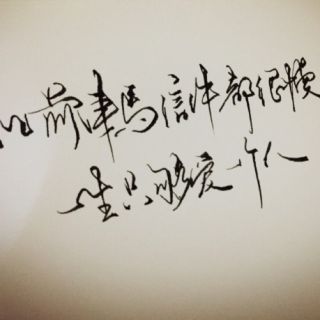 以前車馬信件都很慢
一生只够爱一个人